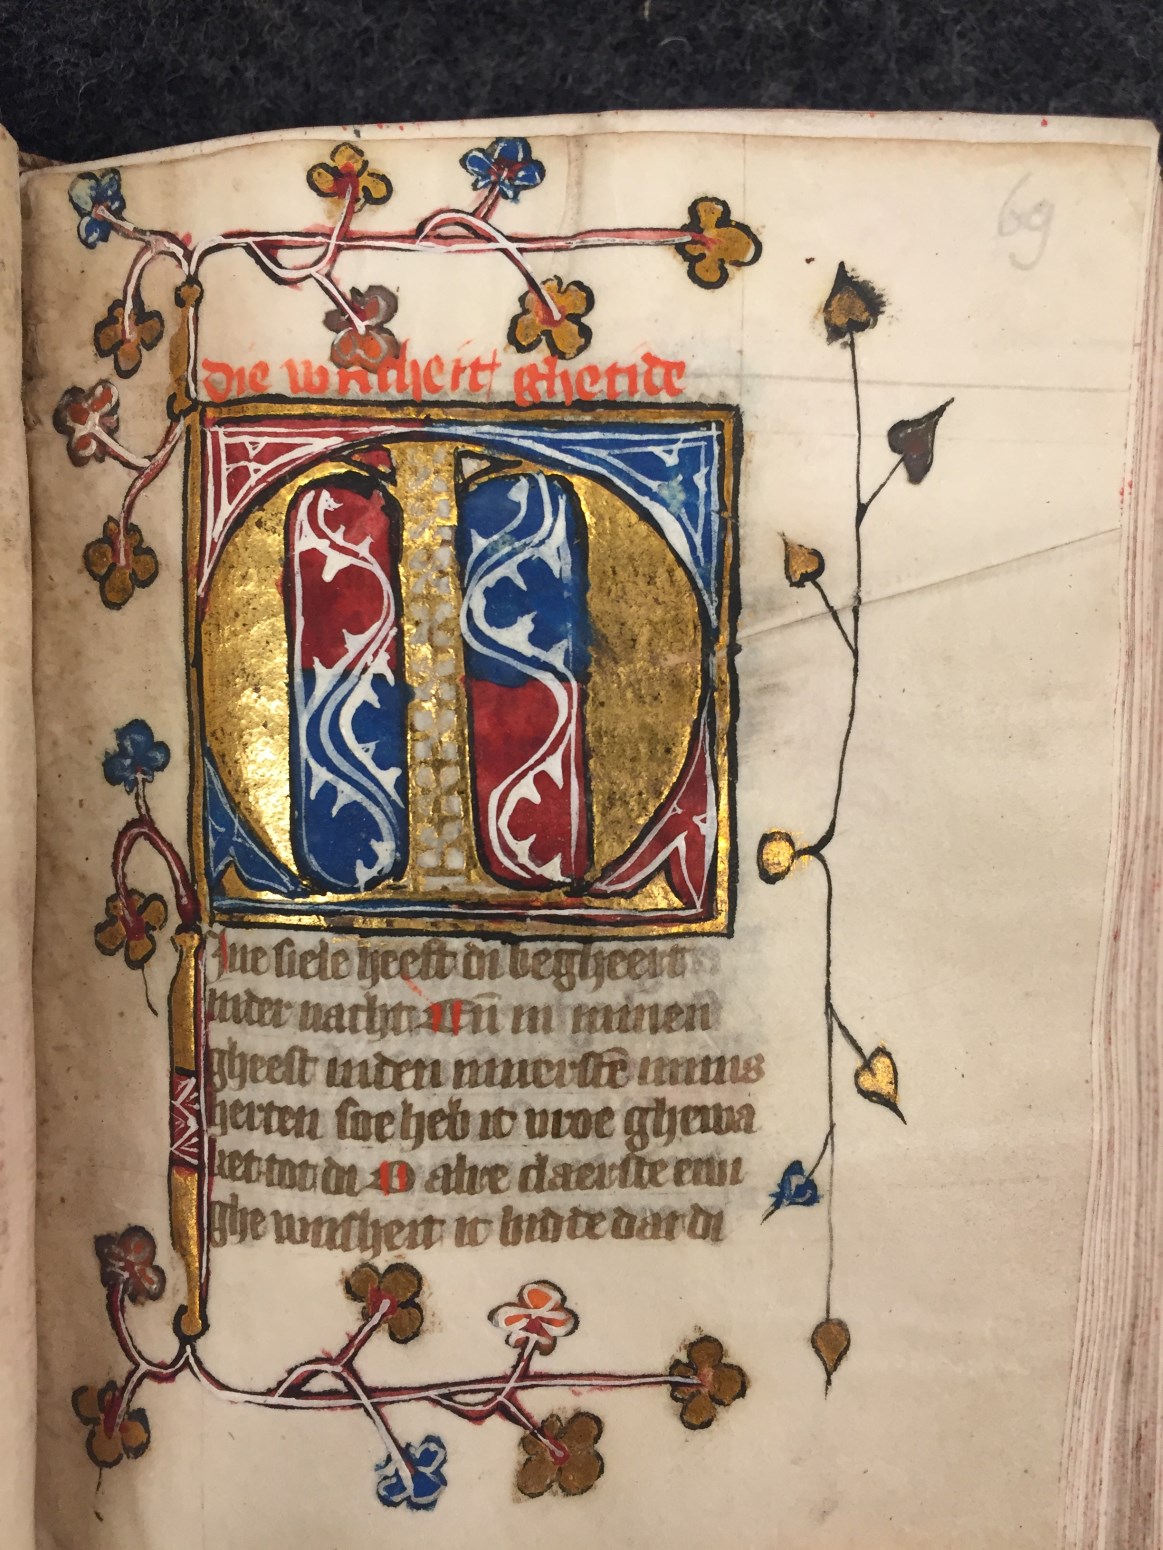 69
die wijsheit ghetide
M
Jne siele heeft di begheert
inder nacht En̄ in minen
gheest inden innerstē mijns
herten soe heb ic vroe ghewa
ket tot di O alre claerste ewi
ghe wijsheit ic bidde dat di